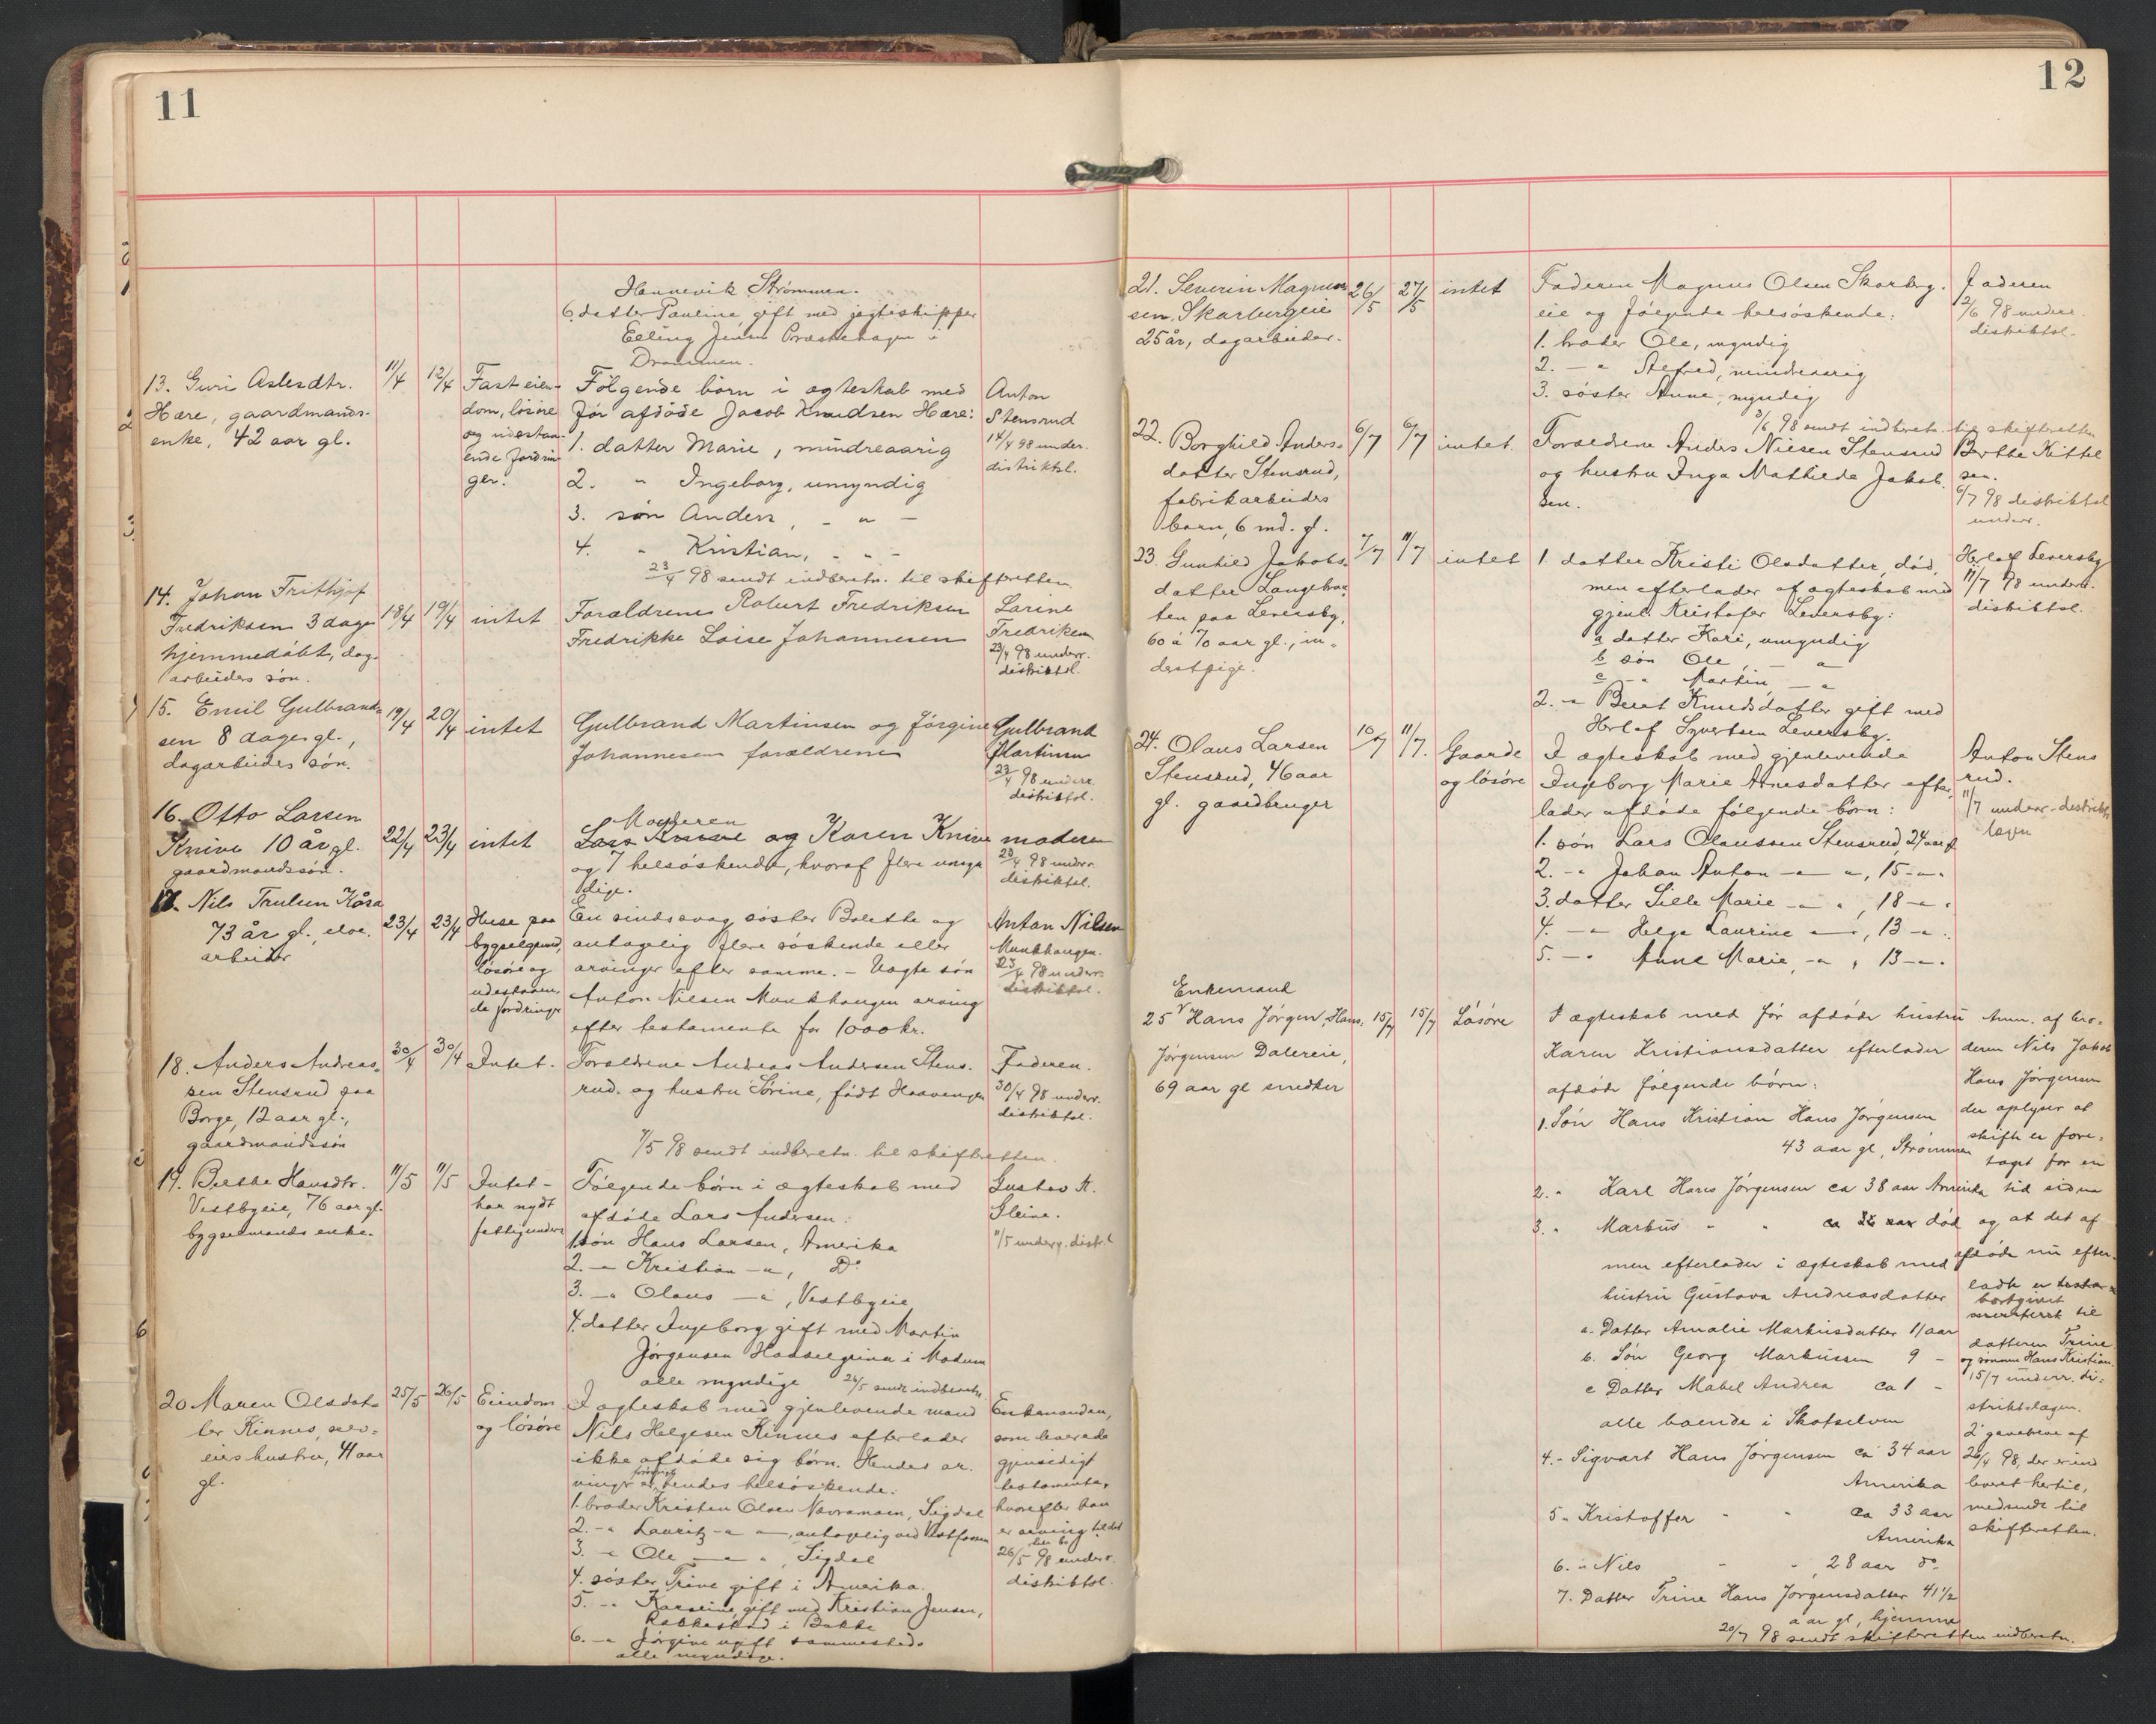 11
Hannevik Strømmen.
6. datter Pauline gift med jagteskipper
Præstehagen i
Drammen.
13. Guri Aslesdtr.
Hære, gaardmands-
enke, 42 aar gl.
11/4
12/4
Fast eien-
dom, løsøre
og udestaa-
ende fordrin-
ger.
Følgende børn i ægteskab med
før afdøde Jacob Knudsen Hære:
1. datter Marie, mindreaarig
2. " Ingeborg, umyndig
3. søn Anders, - " -
4. " Kristian, - " -
23/4 98 sendt indberetn. til skifteretten.
Anton
Stensrud
14/4 98 under.
distriktsl.
14. Johan Frithjof
Fredriksen 3 dage
hjemmedøbt, dag-
arbeiders søn.
18/4
19/4
intet
Forældrene Robert Fredriksen
Fredrikke Loise Johannesen
Larine
Fredriksen
23/4 98 underr.
distriktsl.
15. Emil Gulbrand-
sen 8 dager gl.,
dagarbeiders søn.
19/4
20/4
intet
Gulbrand Martinsen og Jørgine
Johannesen forældrene
Gulbrand
Martinsen
23/4 98 underr.
distriktsl.
16. Otto Larsen
Knive 10 år gl.
gaardmandssøn.
22/4
23/4
intet
Moderen
Lars Knive og Karen Knive
og 7 helsøskende, hvoraf flere umyn
dige.
moderen
23/4 98 underr.
distriktsl.
17. Nils Trulsen Kåsa
73 år gl., elve.
arbeider
23/4
23/4
Huse paa
bygselgrund,
løsøre og
udestaaen-
de fordringer
En sindssvag søster Bolette og
antagelig flere søskende eller
arvinger efter samme. - Uægte søn
Anton Nilsen Munkhaugen arving
efter testamente for 1000 kr.
Anton Nilsen
Munkhaugen.
23/4 98 underr.
distriktsl.
18. Anders Andreas-
sen Stensrud paa
Borge, 12 aar gl.,
gaardmandssøn
30/4
30/4
Intet.
Forældrene Andreas Andersen Stens-
rud. og hustru Sørine, født Haavengen
7/5 98 sendt indberetn. til skifteretten.
Faderen.
30/4 98 underr.
distriktsl.
19. Berthe Hansdtr.
Vestbyeie, 76 aar gl.
bygselmands enke.
11/5
11/5
Intet -
har nydt
fattigunders
Følgende børn i ægteskab med
afdøde Lars Andersen:
1. søn Hans Larsen, Amerika
2. - " Kristian - " , Do
3. - " Olaus - " , Vestbyeie
4. datter Ingeborg gift med Martin
Jørgensen Haaselgrina i Modum
alle myndige 26/5 sendt indberetn.
Gustav A.
Gleine.
11/5 underr. distr.l
20 Maren Olsdat-
ter Kinnes, selv-
eiers hustru, 41 aar
gl.
25/5
26/5
Eiendom
og løsøre
I ægteskab med gjenlevende mand
Nils Helgesen Kinnes efterlader
ikke afdøde sig børn. Hendes ar-
vinger er hendes helsøskende:
1. broder Kristen Olsen Sigdal
2. - " Lauritz - " - , antagelig ved Vestfossen
3. - " Ole - " - " , Sigdal
4. søster Trine gift i Amerika.
5. - " Karoline, gift med Kristian Jensen,
i Bakke
6. - " Jørgine ugift sammesteds
alle myndige.
Enkemanden,
som har
gjensidigt
testamente,
hvorefter han
er arving til det
hele bo
26/5 98 underr.
distriktsl.
12
21. Severin Magnus-
sen Skarbergeie
25 år, dagarbeider.
26/5
27/5
intet
Faderen Magnus Olsen Skarberg-
eie og følgende helsøskende:
1. broder Ole, myndig
2. - " Alfred, mindreaarig
3. søster Anne, myndig
3/6 98 sendt indberetn. til skifteretten
Faderen
2/6 98 underr.
distriktsl.
22. Borghild Anders-
datter Stensrud,
fabrikarbeiders
barn, 6 md. gl.
6/7
6/7
intet.
Forældrene Anders Nilsen Stensrud
og hustru Inga Mathilde Jakob-
sen.
Berthe Kittel
sen.
6/7 98 distriktsl
underr.
23. Gunhild Jakobs-
datter Langebra-
ten paa Leversby,
60 à 70 aar gl., in-
derstpige.
7/7
11/7
intet
1 datter Kristi Olsdatter, død,
men efterlader af ægteskab med
gjenl. Kristofer Leversby:
a datter Kari, umyndig
b søn Ole, - "
c - " Martin - "
2. - " Beret Knudsdatter gift med
Herlof Syvertsen Leversby.
Herlof Leversby
11/7 98 underr.
distriktsl.
24. Olaus Larsen
Stensrud, 46 aar
gl. gaardbruger
10/7
11/7.
Gaarde
og løsøre
I ægteskab med gjenlevende
Ingeborg Marie Arnesdatter efter-
lader afdøde følgende børn:
1. søn Lars Olaussen Stensrud, 24 aar gl
2. - " Johan Anton - " " , 15 - " -
3. datter Sille Marie - " " , 18 - " -
4. - " Helga Laurine - " , 13 - " -
5. - " Anne Marie, - " , 13 - " -
Anton Stens
rud.
11/7 underr. distrikts
lægen
Enkemand
25 Hans Jørgen Hans-
Jørgensen Dalereie,
69 aar gl smedker
15/7
15/7
Løsøre
I ægteskab med før afdøde hustru
Karen Kristiansdatter efterlader
afdøde følgende børn:
1. Søn Hans Kristian Hans Jørgensen
43 aar gl, Strømmen
2. " Karl Hans Jørgensen ca 38 aar Amerika
3. " Markus " " død
men efterlader i ægteskab med
hustru Gustava Andreasdatter
a. Datter Amalie Markusdatter 11 aar
b. Søn Georg Markussen 9 -
c Datter Mabel Andrea ca 1 -
alle boende i Skotselven
4. - Sigvart Hans Jørgensen ca 34 aar
Amerika
5 " Kristoffer " " ca 33 aar
Amerika
6. " Nils " " , 28 aar do.
7. Datter Trine Hans Jørgensdatter 41 1/2
aar gl, hjemme
20/7 98 sendt skifteretten indberetn.
Anm. af bro-
deren Nils Jakob
Hans Jørgensen
der oplyser at
skifte er fore-
taget for en
tid siden
og at det af
afdøde nu efter-
ladte er
bortgivet
til
datteren Trine
og sønnen Hans Kristian.
15/7 underr. di-
striktslægen.
2 gavebreve af
26/4 98, der er ind
leveret hertil,
medsendt til
skifteretten.